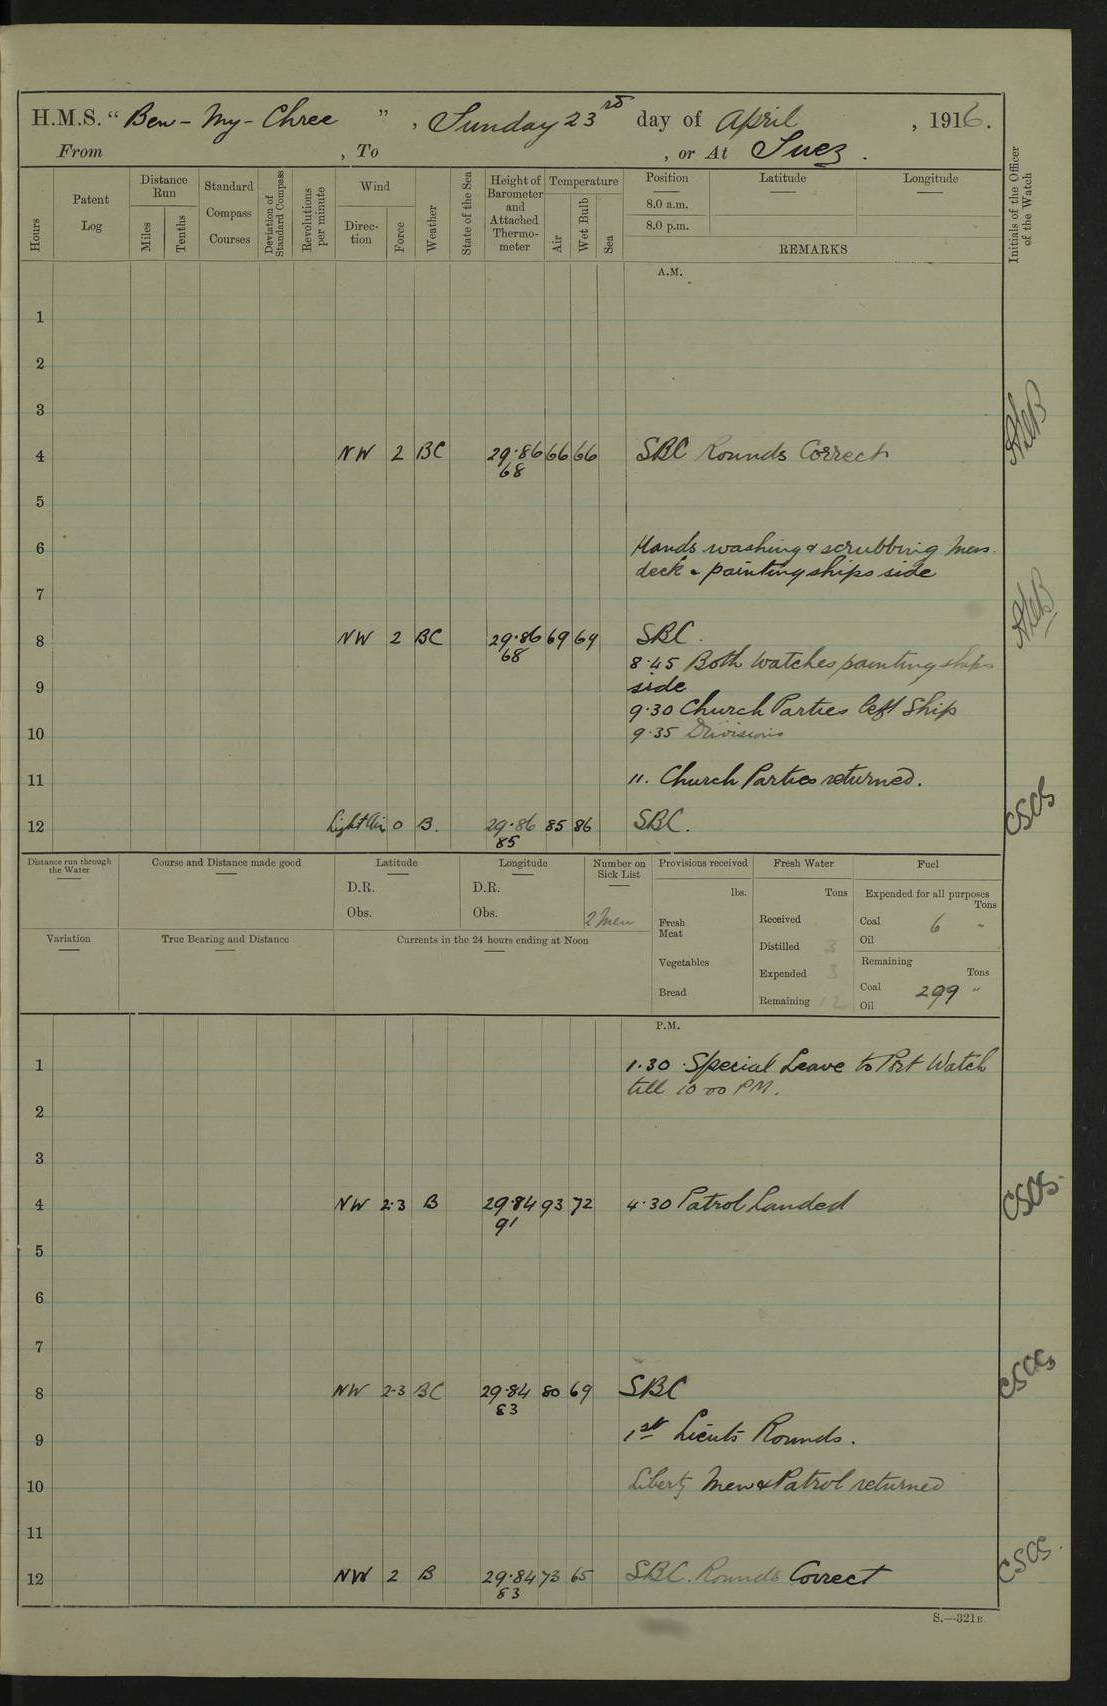 H.M.S. “ Ben-My-Chree ” , Sunday 23rd day of April , 1916.
From , To , or At Suez .
Hours
Patent Log
Distance Run
Miles
Tenths
Standard Compass Courses
Deviation of Standard Compass
Revolutions per minute
Wind
Direction
Force
Weather
State of the Sea
Height of Barometer and Attached Thermometer
Temperature
Air
Wet Bulb
Sea
Position
8.0 a.m.
8.0 p.m.
Latitude
Longitude
REMARKS
Initials of the Officer of the Watch
A.M.
1
2
3
4 NW 2 BC 29.86 66 66 SBC Rounds Correct
68
5
6 Hands washing & scrubbing Mess
deck & painting ships side
7
8 NW 2 BC 29.86 69 69 SBC.
68
8.45 Both Watches painting ships
9 side
9.30 Church Parties left Ship
10 9.35 Divisions
11 11. Church Parties returned.
12 Light Air 0 B. 29.86 85 86 SBC. CSCS
85
Distance run through the Water
Course and Distance made good
Latitude
D.R.
Obs.
Longitude
D.R.
Obs.
Number on Sick List
2 Men
Provisions received
lbs.
Fresh Meat
Vegetables
Bread
Fresh Water
Tons
Received
Distilled 3
Expended 3
Remaining
Fuel
Expended for all purposes
Tons
Coal 6 "
Oil
Remaining
Tons
Coal 299 "
Oil
Variation
True Bearing and Distance
Currents in the 24 hours ending at Noon
P.M.
1 1.30 Special Leave to Port Watch
till 10 00 PM.
2
3
4 NW 2.3 B 29.84 93 72 4.30 Patrol Landed CSCS
91
5
6
7
8 NW 2-3 BC 29.84 80 69 SBC CSCS
83
9 1st Lieuts Rounds.
10 Liberty Men & Patrol returned
11
12 NW 2 B 29.84 73 65 SBC. Rounds Correct CSCS
83
S.—321B.